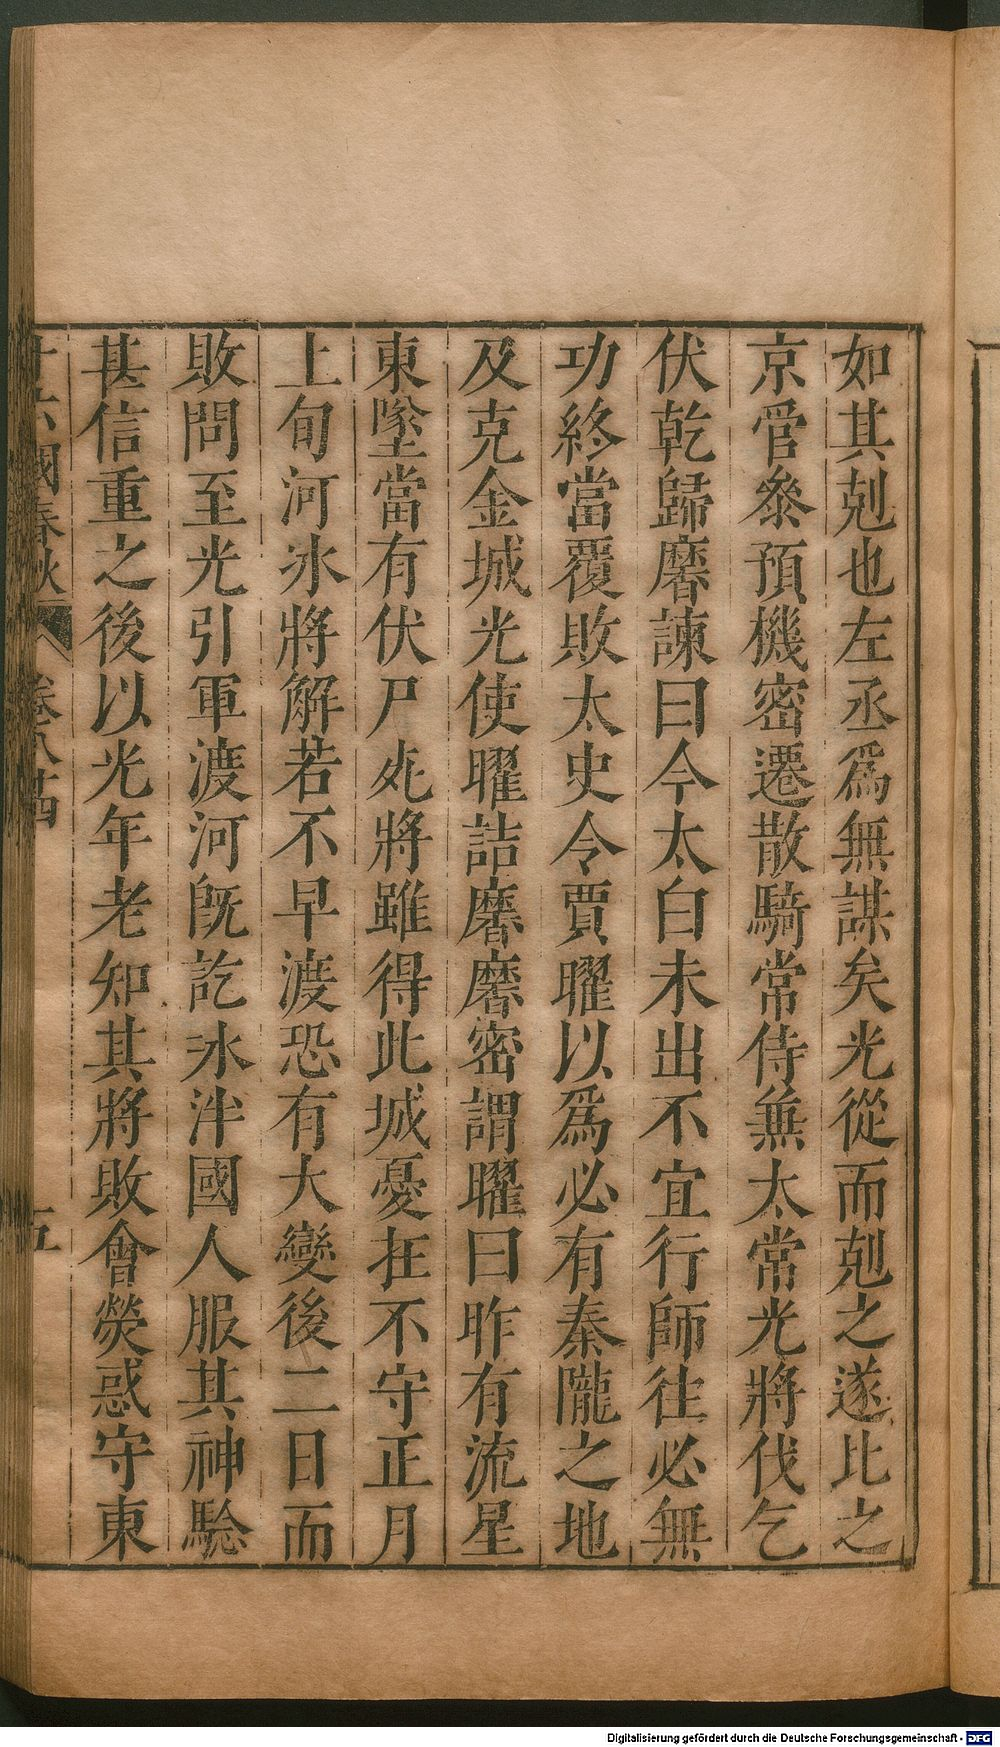 如其剋也左丞爲無謀矣光從而剋之遂比之
京管參預機密遷散騎常侍兼太常光將伐乞
伏乾歸黁諫曰今太白未出不宜行師徃必無
功終當覆敗太史令賈曜以爲必有秦隴之地
及克金城光使曜詰黁黁密謂曜曰昨有流星
東墜當有伏尸死將雖得此城憂在不守正月
上旬河氷將解若不早渡恐有大變後二日而
敗問至光引軍渡河旣訖氷泮國人服其神驗
甚信重之後以光年老知其將敗會熒惑守東
十六國春秋 卷八十四 五
Digitalisierung gefördert durch die Deutsche Forschungsgemeinschaft - DFG